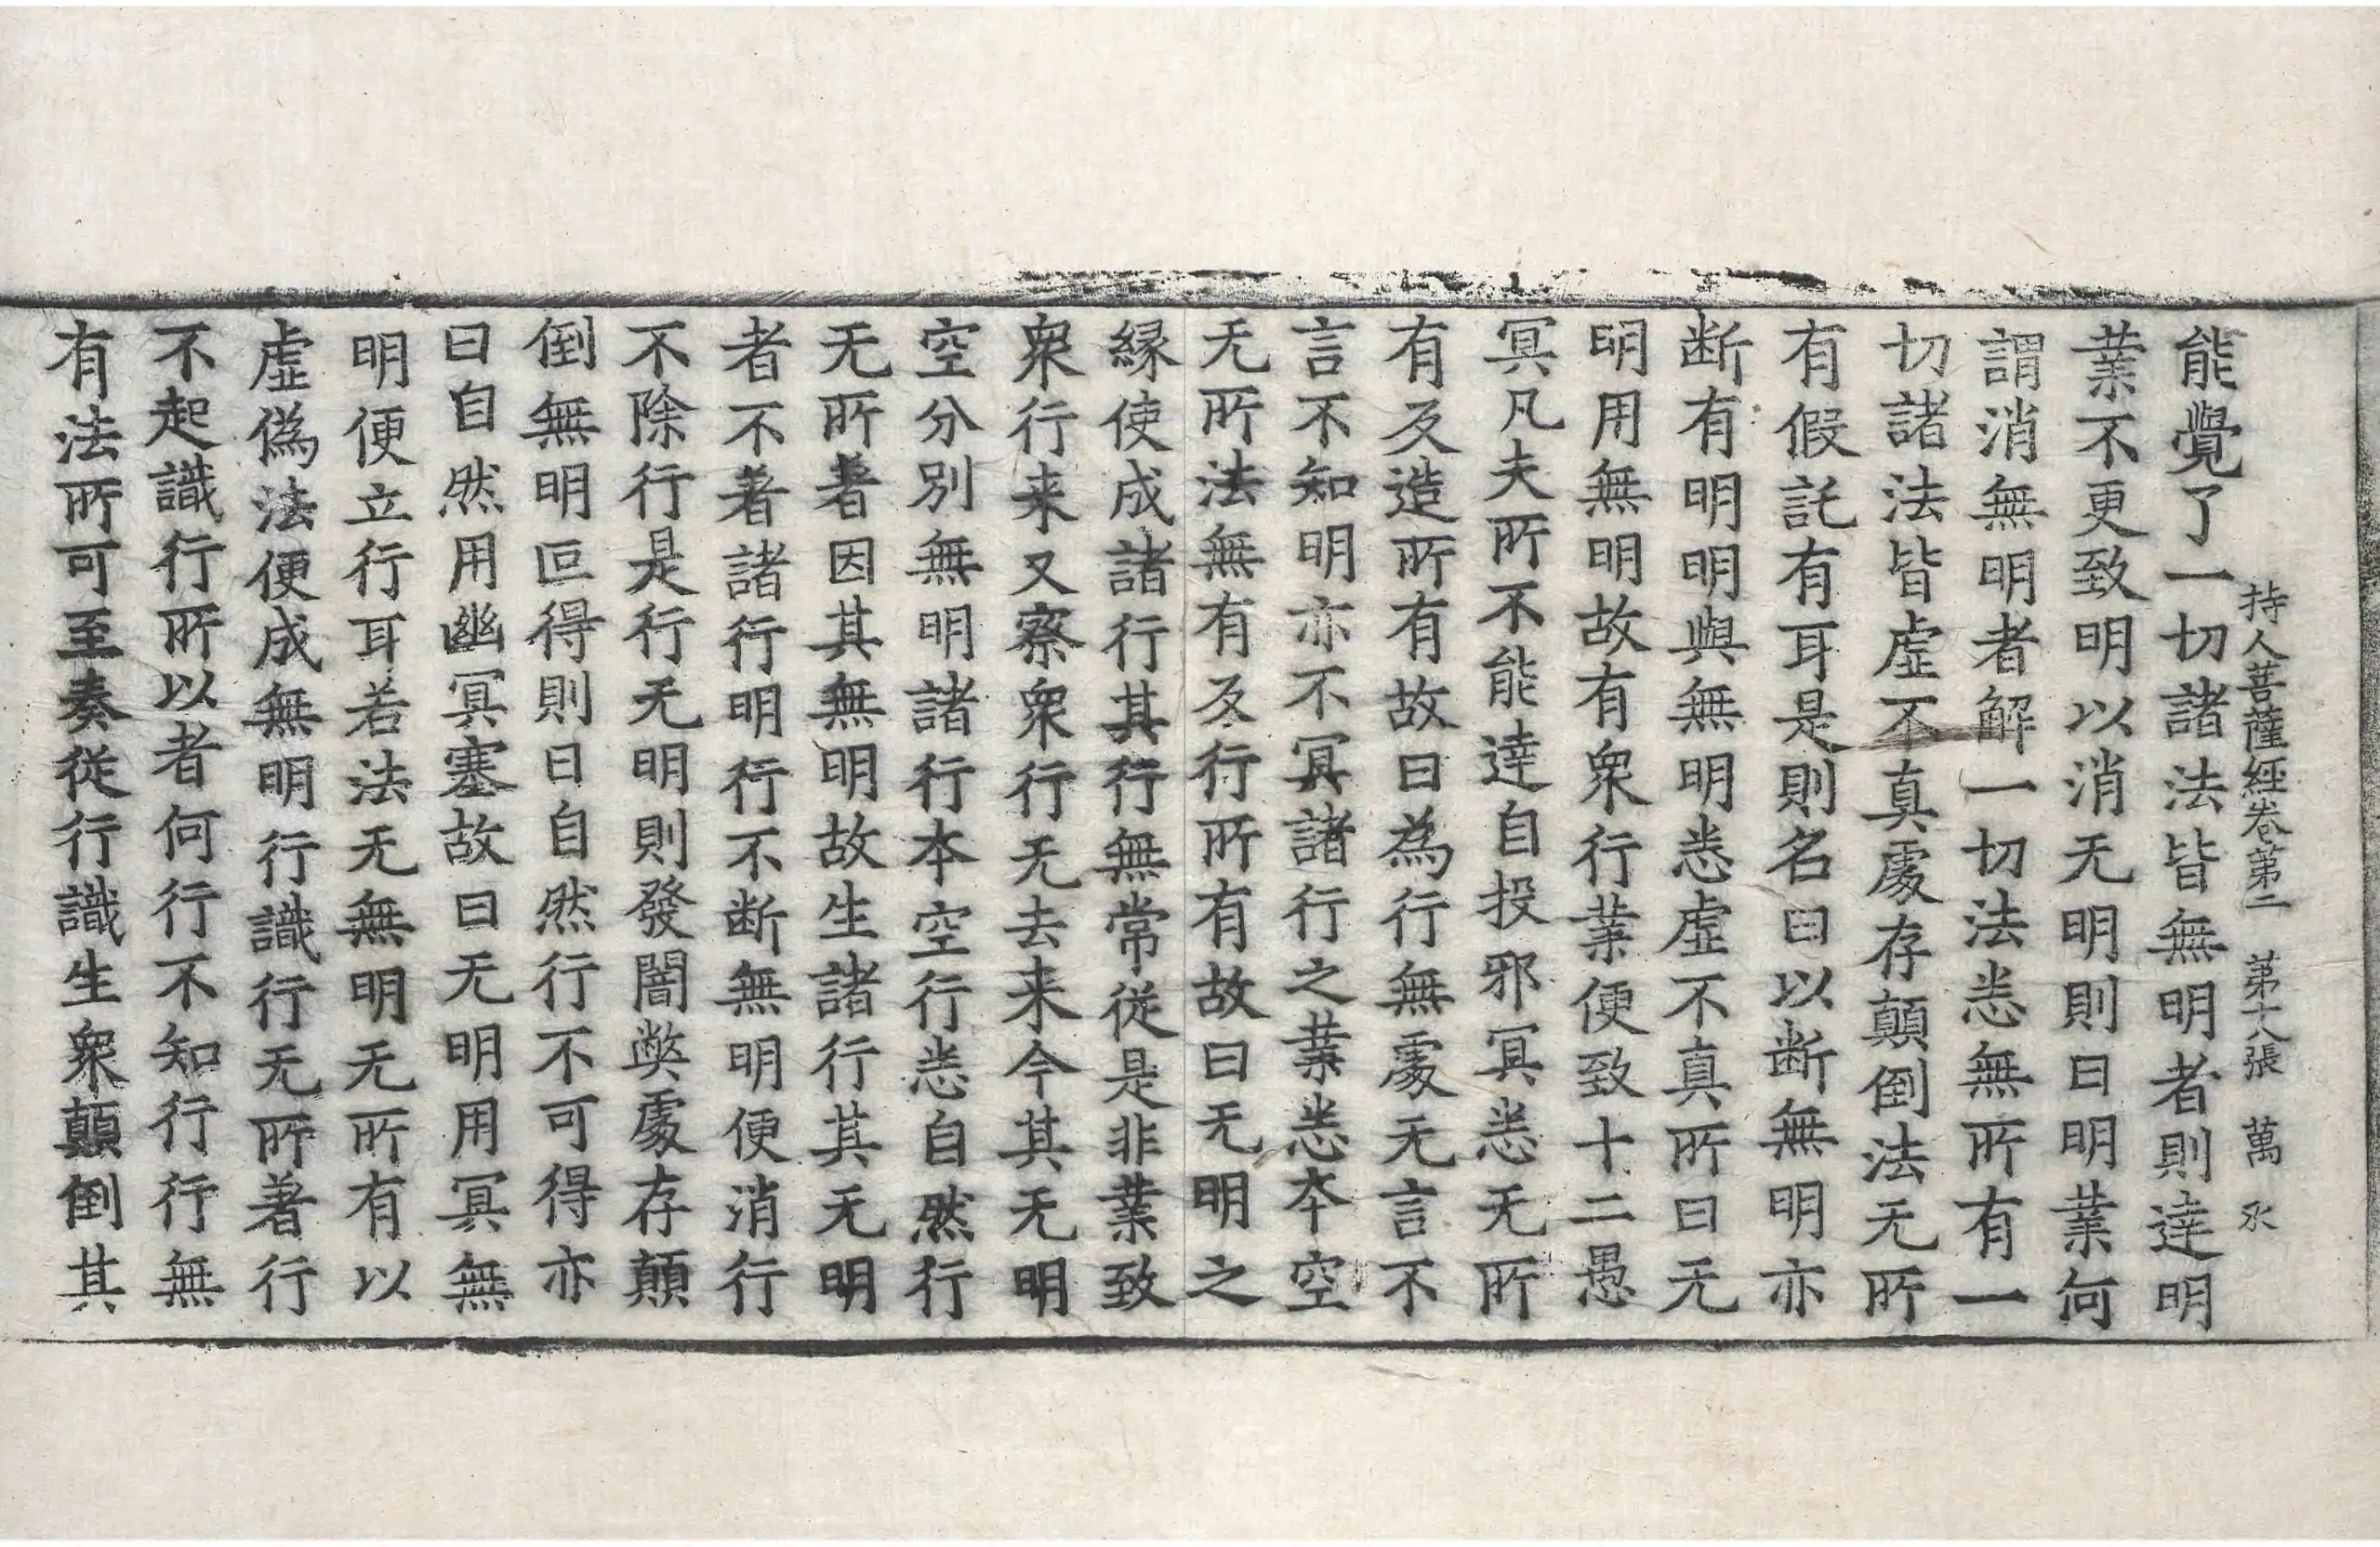 持人菩薩經卷第二 第十八張 萬
能覺了一切諸法皆無明者則達明
業不更致明以消无明則曰明業何
謂消無明者解一切法悉無所有一
切諸法皆虛不真處存顛倒法无所
有假託有耳是則名曰以断無明亦
断有明明與無明悉虛不真所曰无
明用無明故有衆行業便致十二愚
冥凡夫所不能達自投邪冥悉无所
有及造所有故曰為行無處无言不
言不知明亦不冥諸行之業悉本空
无所法無有及行所有故曰无明之
緣使成諸行其行無常從是非業致
衆行来又察衆行无去来今其无明
空分別無明諸行本空行悉自然行
无所著因其無明故生諸行其无明
者不著諸行明行不断無明便消行
不除行是行无明則發闇弊處存顛
倒無明叵得則曰自然行不可得亦
曰自然用幽冥塞故曰无明用冥無
明便立行耳若法无無明无所有以
虛偽法便成無明行識行无所著行
不起識行所以者何行不知行行無
有法所可至奏從行識生衆顛倒其